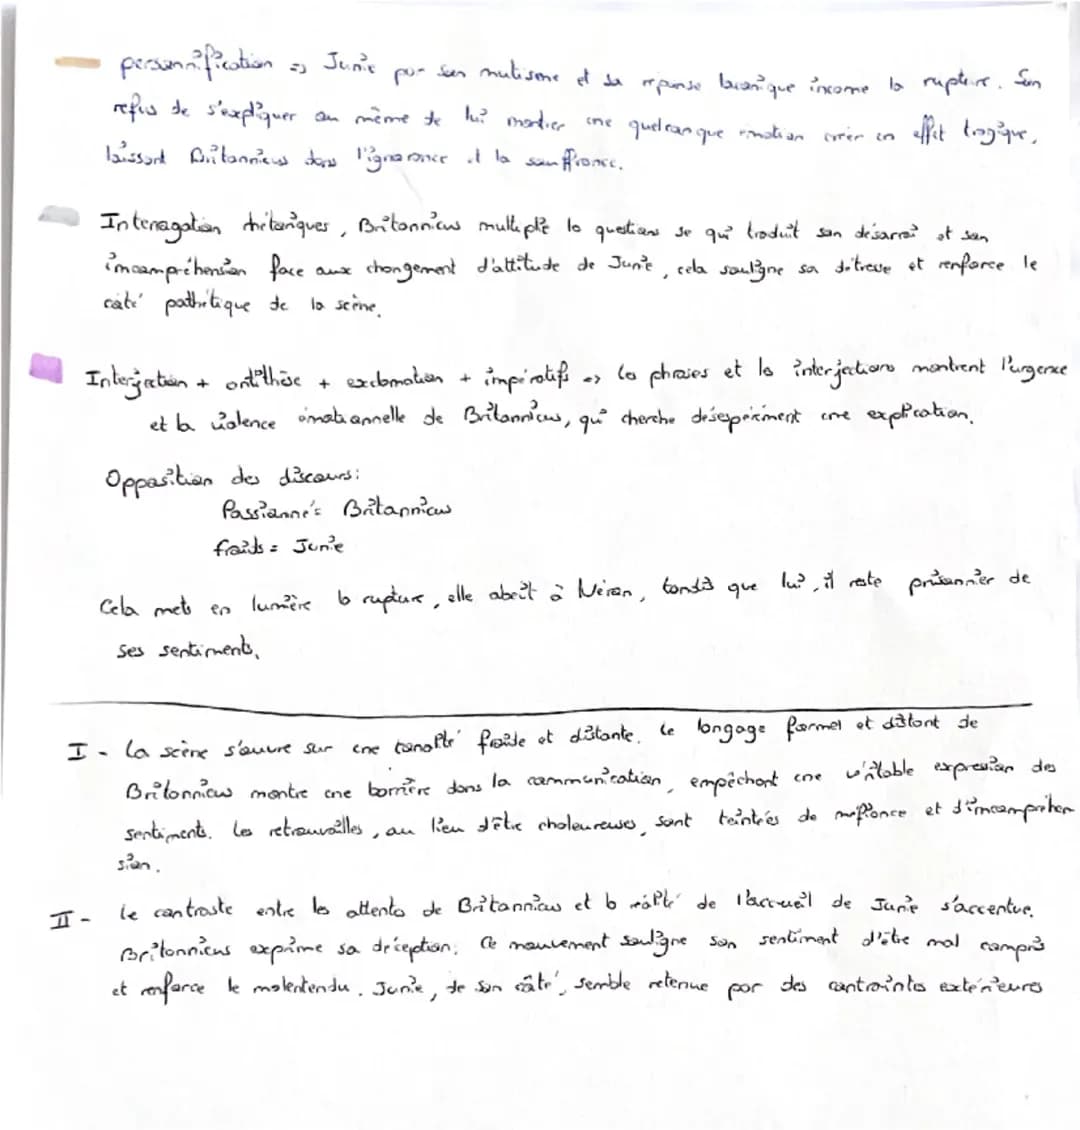 personnification => Junie par son mutisme et sa réponse laconique incarne la rupture. Son
refus de s'expliquer ou même de lui montrer une quelconque émotion créer un effet tragique,
laissant Britannicus dans l'ignorance et la souffrance.
Interrogation rhétoriques, Britannicus multiplie les questions se qui traduit son désarroi et son
incompréhension face aux changement d'attitude de Junie, cela souligne sa détresse et renforce le
côté pathétique de la scène.
Interjection + antithèse + exclamation + impératifs => les phrases et les interjections montrent l'urgence
et la violence émotionnelle de Britannicus, qui cherche désespérément une explication.
Opposition des discours:
Passionné = Britannicus
froids = Junie
Cela mets en lumière la rupture, elle obéit à Néron, tandis que lui, il reste prisonnier de
ses sentiments.
I - La scène s'ouvre sur une tonalité froide et distante. Le langage formel et distant de
Britannicus montre une barrière dans la communication, empêchant une véritable expression des
sentiments. Les retrouvailles, au lieu d'être chaleureuses, sont teintées de méfiance et d'incompréhen
sion.
II - Le contraste entre les attentes de Britannicus et la réalité de l'accueil de Junie s'accentue.
Britannicus exprime sa déception. Ce mouvement souligne son sentiment d'être mal compris
et renforce le malentendu. Junie, de son côté, semble retenue par des contraintes extérieures